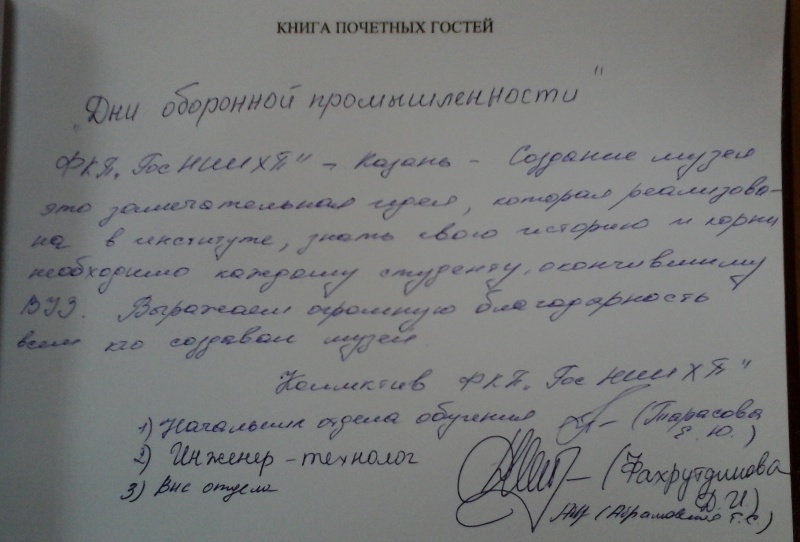 КНИГА ПОЧЕТНЫХ ГОСТЕЙ
„Дни оборонной промышленности"
ФКП „ГосНИИХП" – Казань – Создание музея
это замечательная идея, которая реализова-
на в институте, знать свою историю и корни
необходимо каждому студенту, окончившему
ВУЗ. Выражаем огромную благодарность
всем кто создавал музей.
Коллектив ФКП „ГосНИИХП"
1) Начальник отдела обучения (Тарасова
Е.Ю.)
2) Инженер – технолог (Фахрутдинова
Д.И)
3) Внс отдела